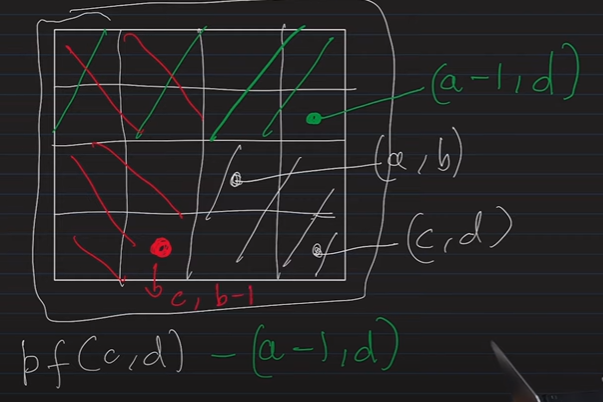 (a-1, d)
(a, b)
(c, d)
c, b-1
pf(c, d) - (a-1, d)